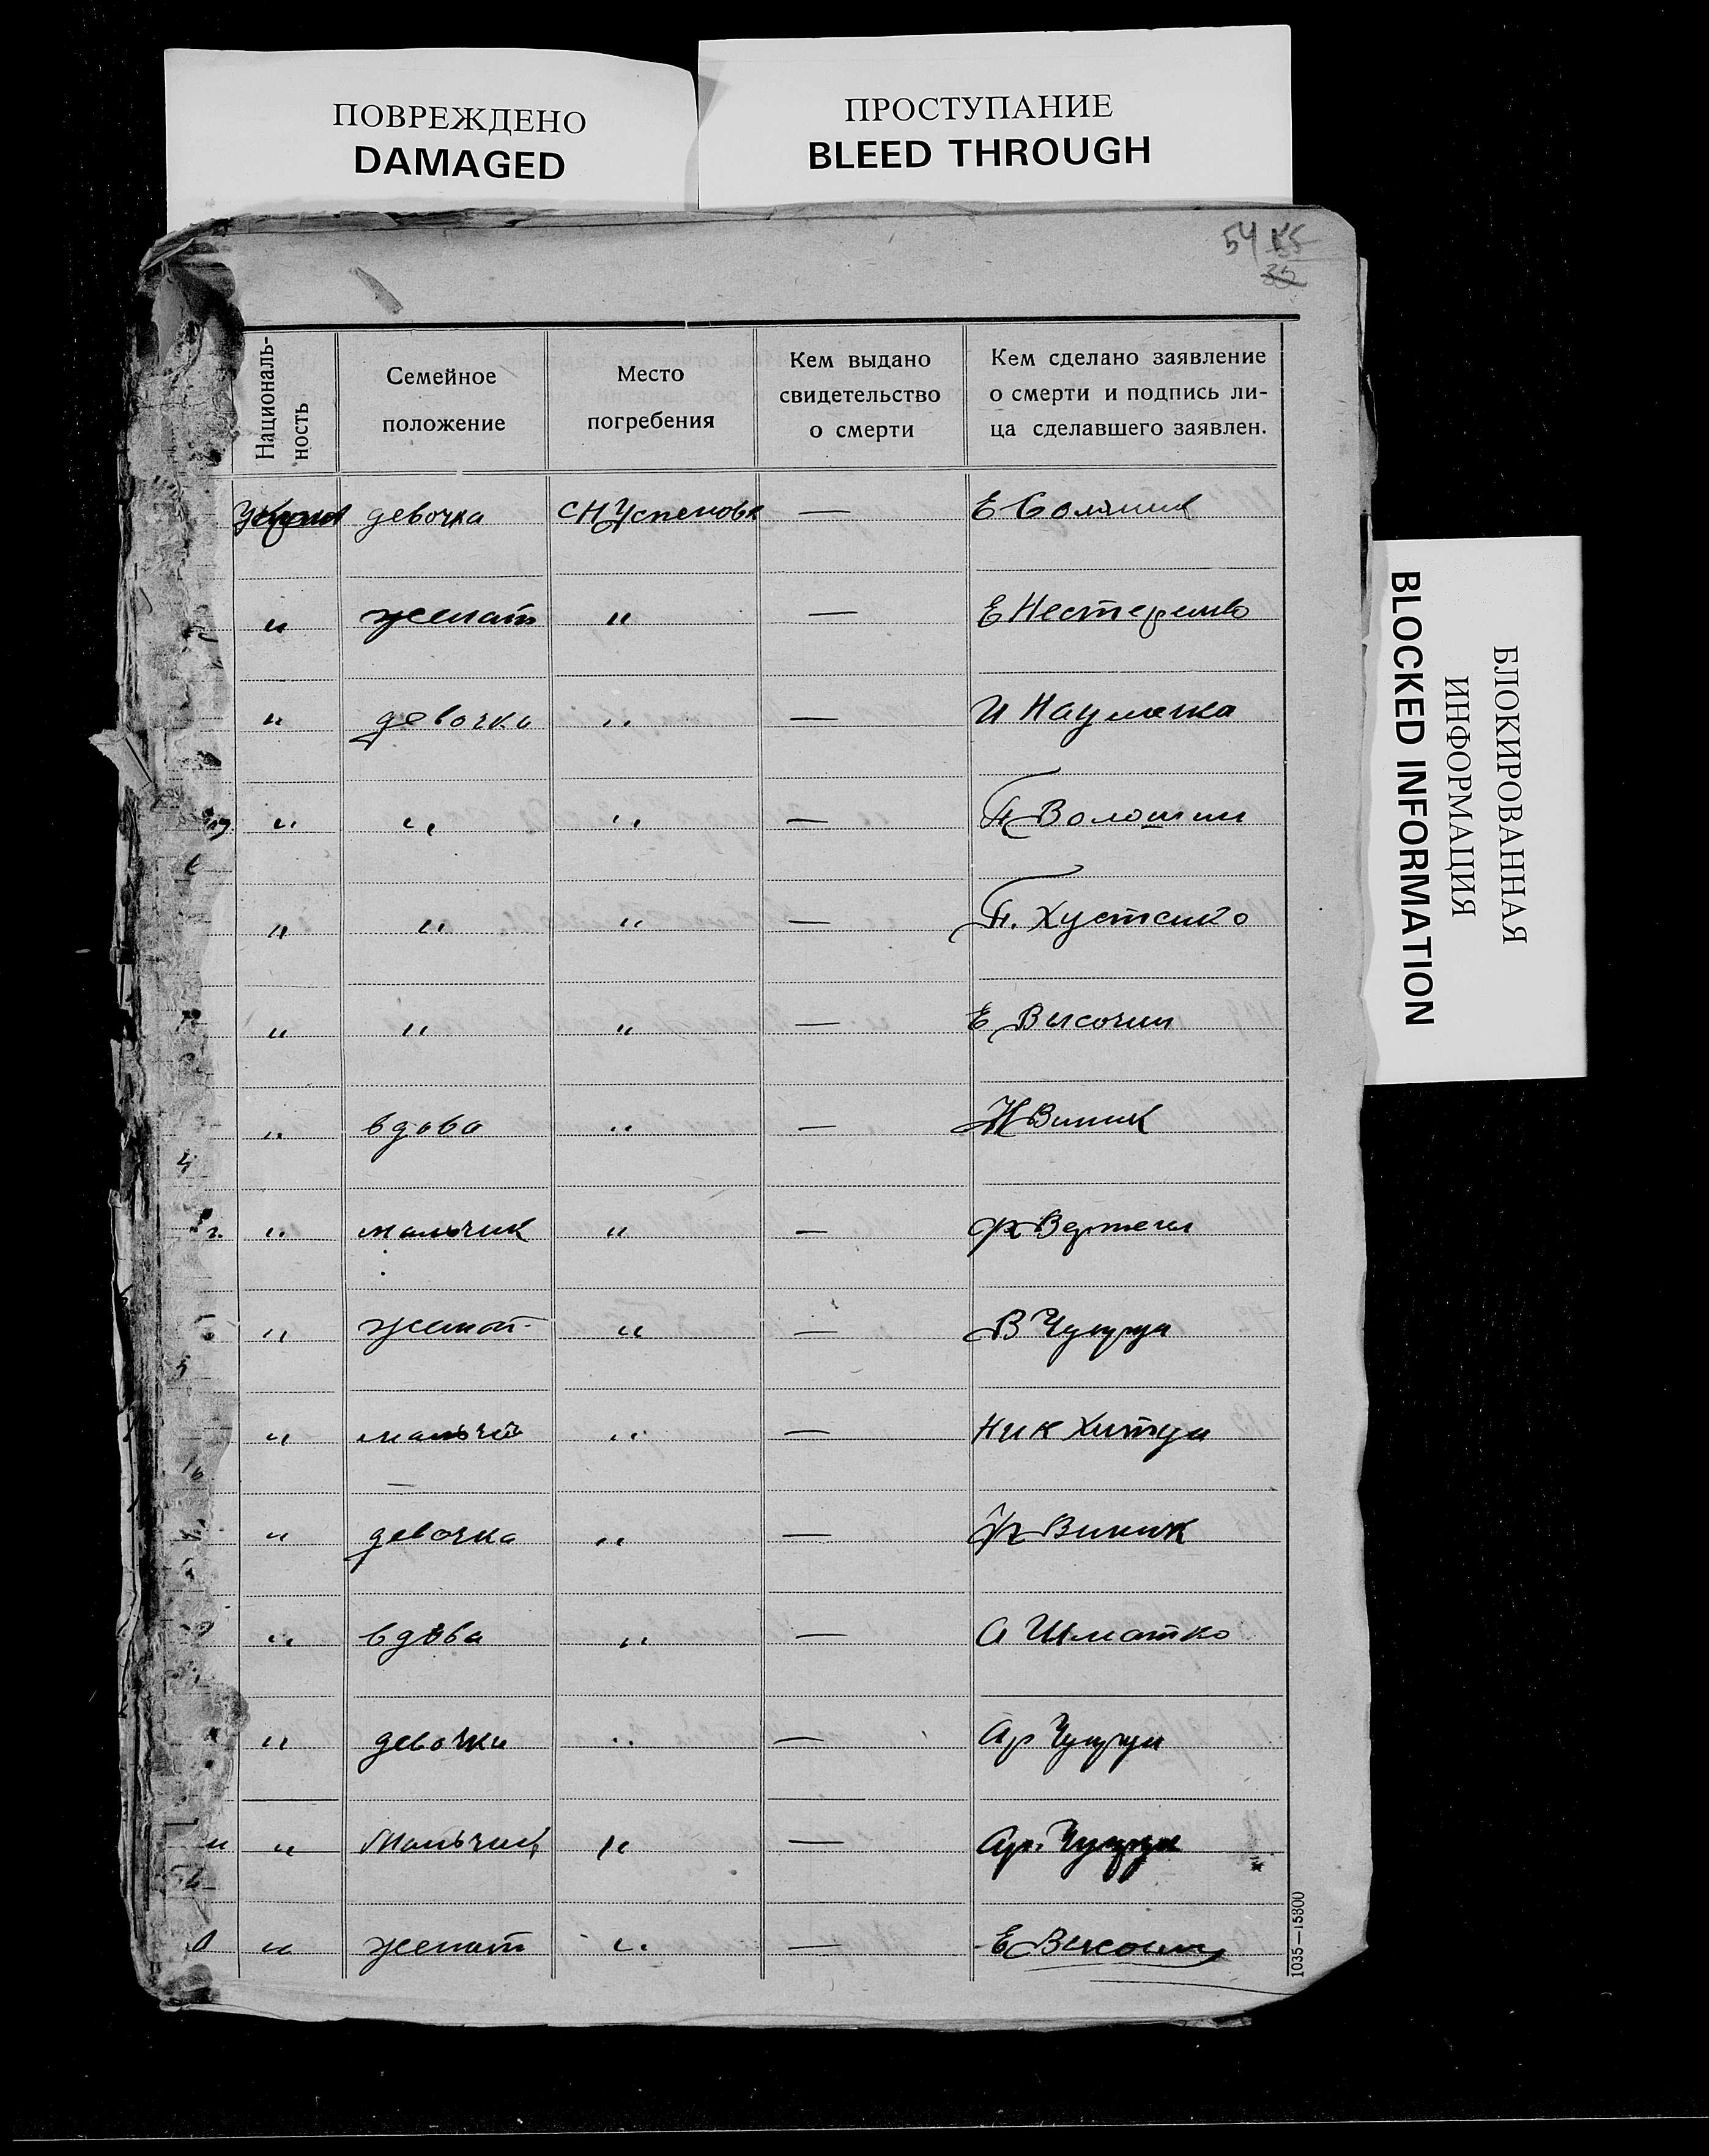 ПОВРЕЖДЕНО
DAMAGED
ПРОСТУПАНИЕ
BLEED THROUGH
54
Националь-
ность
Семейное
положение
Место
погребения
Кем выдано
свидетельство
о смерти
Кем сделано заявление
о смерти и подпись ли-
ца сделавшего заявлен.
девочка СН Успеновк — Е
" женат " — Е Нестеренко
" девочка " — И Науменка
" " " — П Волошин
" " " — П. Хустенко
" " " — Е Высочин
" вдова " — Виник
" мальчик " —
" женат " — В Чукурна
" мальчик " — Ник
" девочка " — Виник
" вдова " — А Шматко
" девочка " — Ар
" Мальчик " — Ар.
" женат " — Е Высочин
1035—15300
БЛОКИРОВАННАЯ
ИНФОРМАЦИЯ
BLOCKED INFORMATION